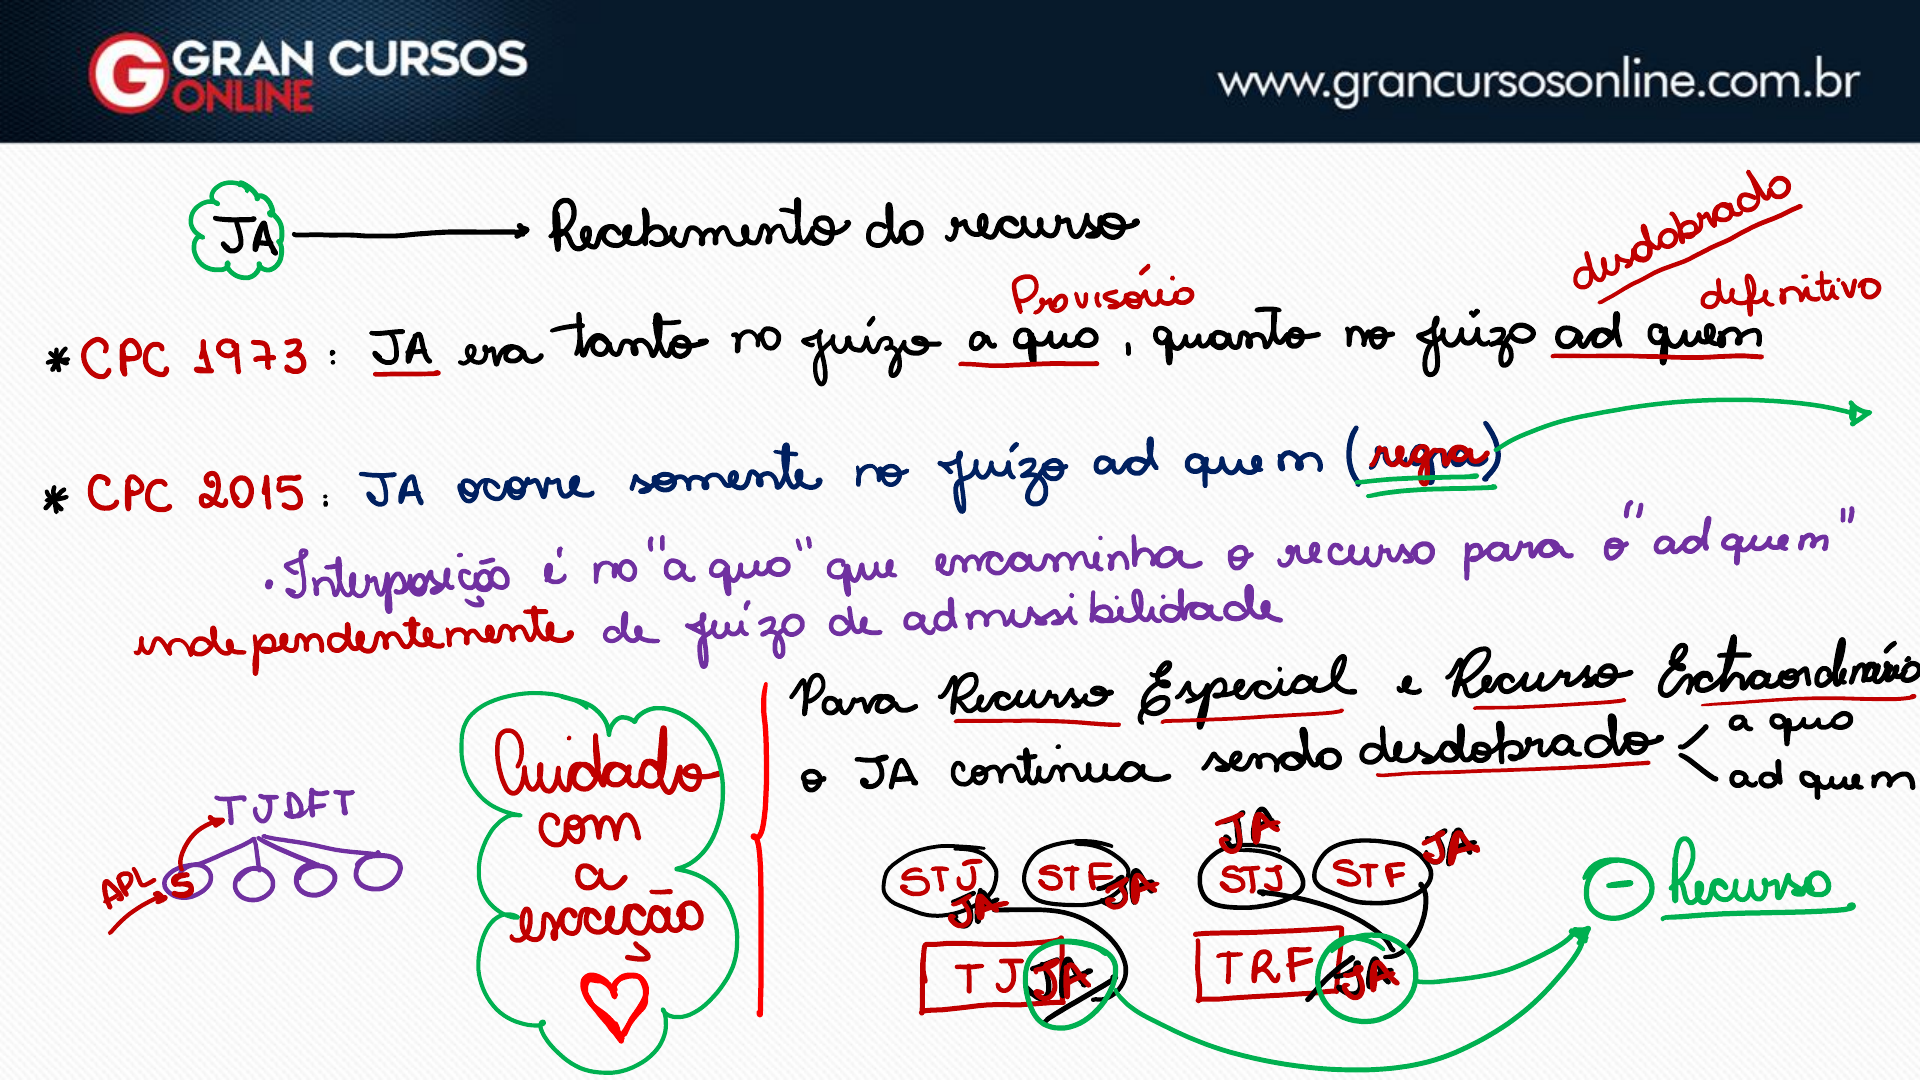 GRAN CURSOS
ONLINE
www.grancursosonline.com.br
JA → Recebimento do recurso
desdobrado
Provisório
definitivo
* CPC 1973 : JA era tanto no juízo a quo, quanto no juízo ad quem
* CPC 2015 : JA ocorre somente no juízo ad quem (regra)
• Interposição é no "a quo" que encaminha o recurso para o "ad quem"
independentemente de juízo de admissibilidade
Para Recurso Especial e Recurso Extraordinário
o JA continua sendo desdobrado < a quo
ad quem
Cuidado
com
a
exceção
TJDFT
APL
S
STJ JA
STF JA
STJ JA
STF JA
TJ JA
TRF JA
- Recurso